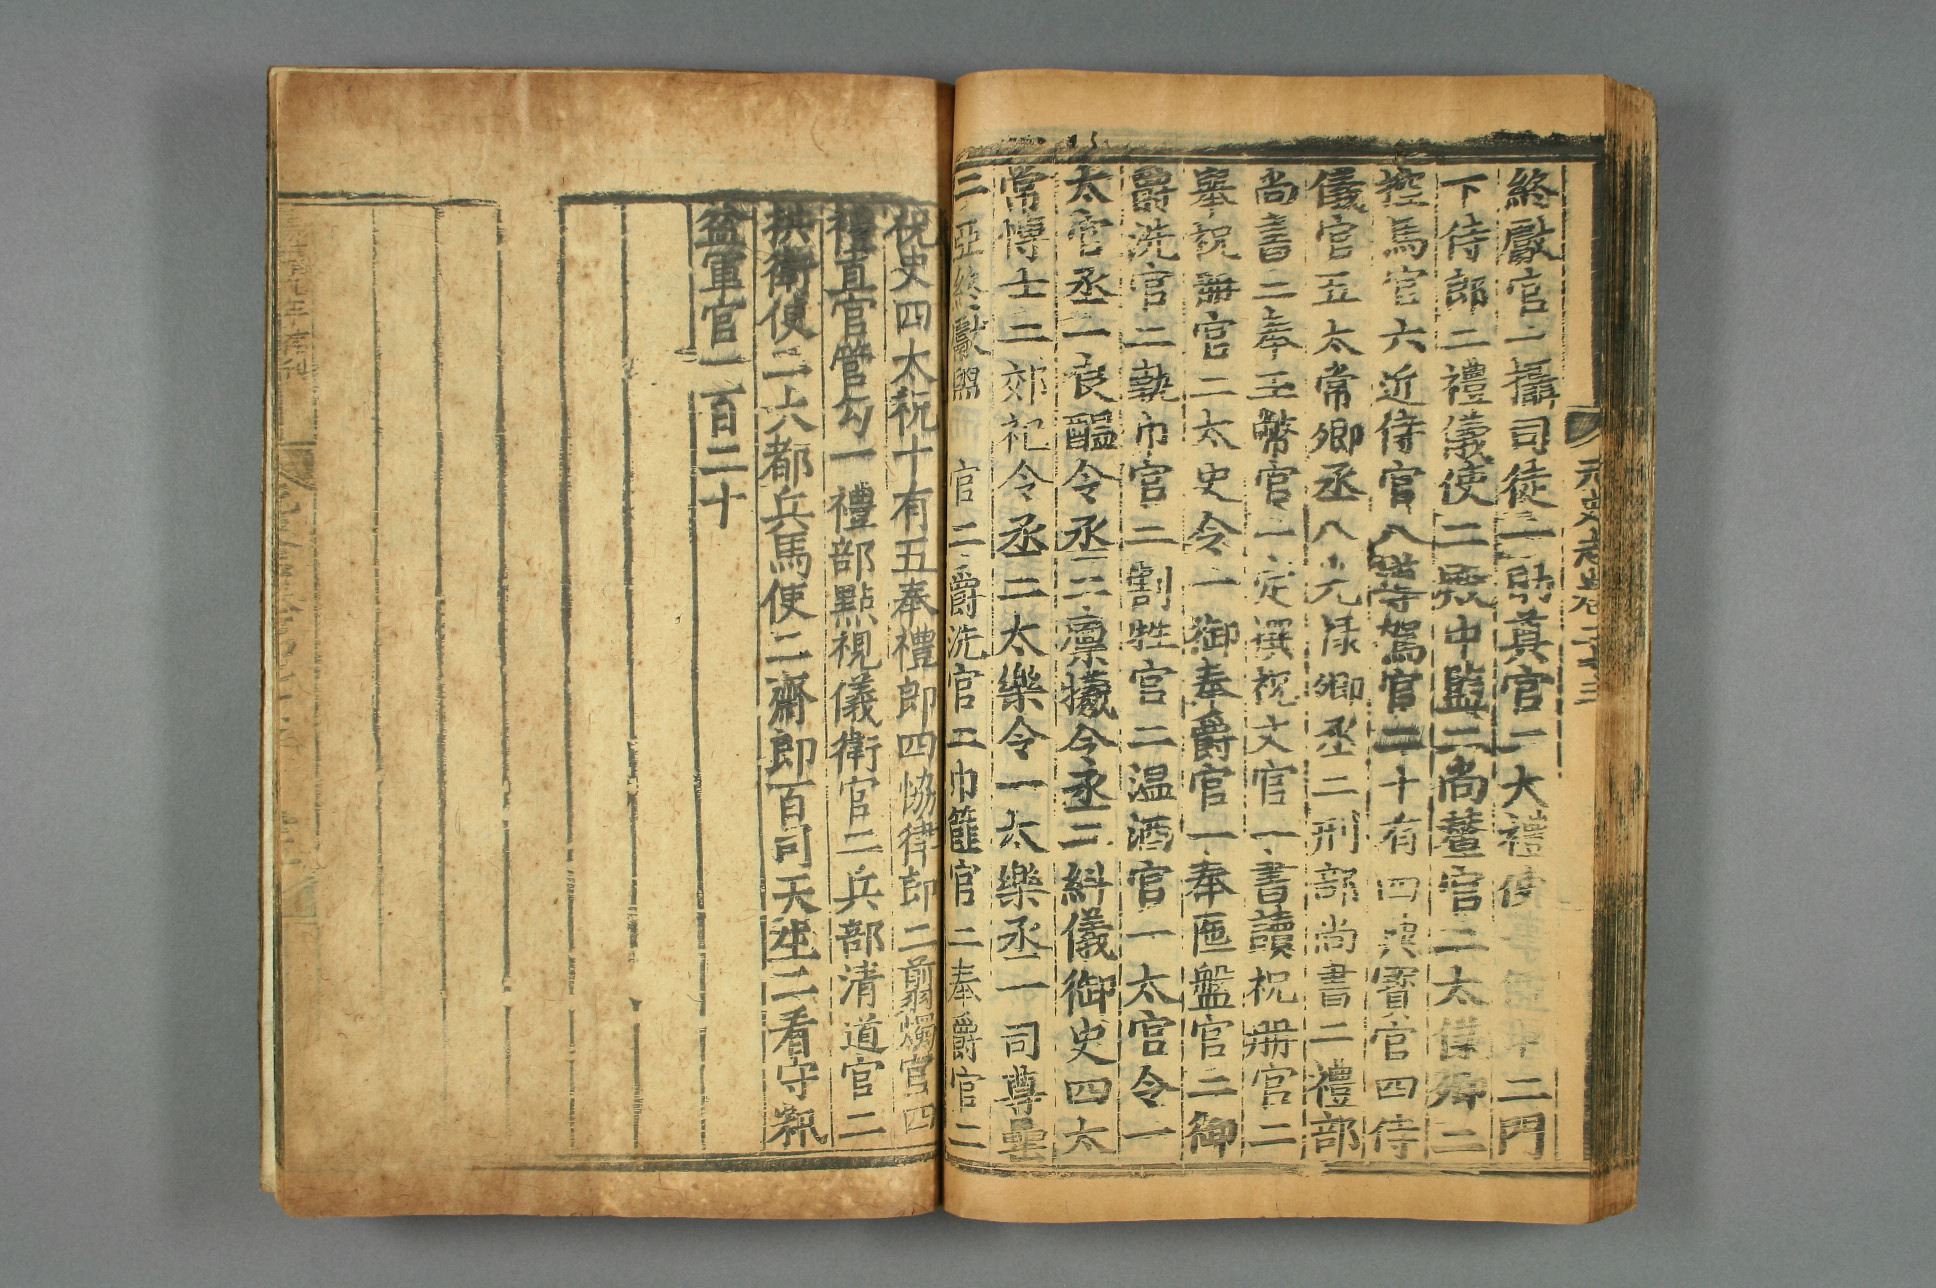 終獻官一攝司徒一助奠官二大禮使 二門
下侍郎二禮儀使二殿中監二尚輦官二太僕卿二
控馬官六近侍官八導駕官二十有四典寶官四侍
儀官五太常卿丞八光祿卿丞二刑部尚書二禮部
尚書二奉玉幣官一定撰祝文官一書讀祝冊官二
舉祝冊官二太史令一御奉爵官一奉匜盤官二御
爵洗官二執巾官二割牲官二温酒官一太官令一
太官丞一良醞令丞二廩犧令丞二糾儀御史四太
常博士二郊祀令丞二太樂令一太樂丞一司尊罍
二亞終獻盥 官二爵洗官二巾篚官二奉爵官二
祝史四太祝十有五奉禮郎四協律郎二翦燭官四
禮直官管勾一禮部點視儀衛官二兵部清道官二
拱衛使二大都兵馬使二齋郎百司天生二看守籸
盆軍官一百二十
元史志卷二十三